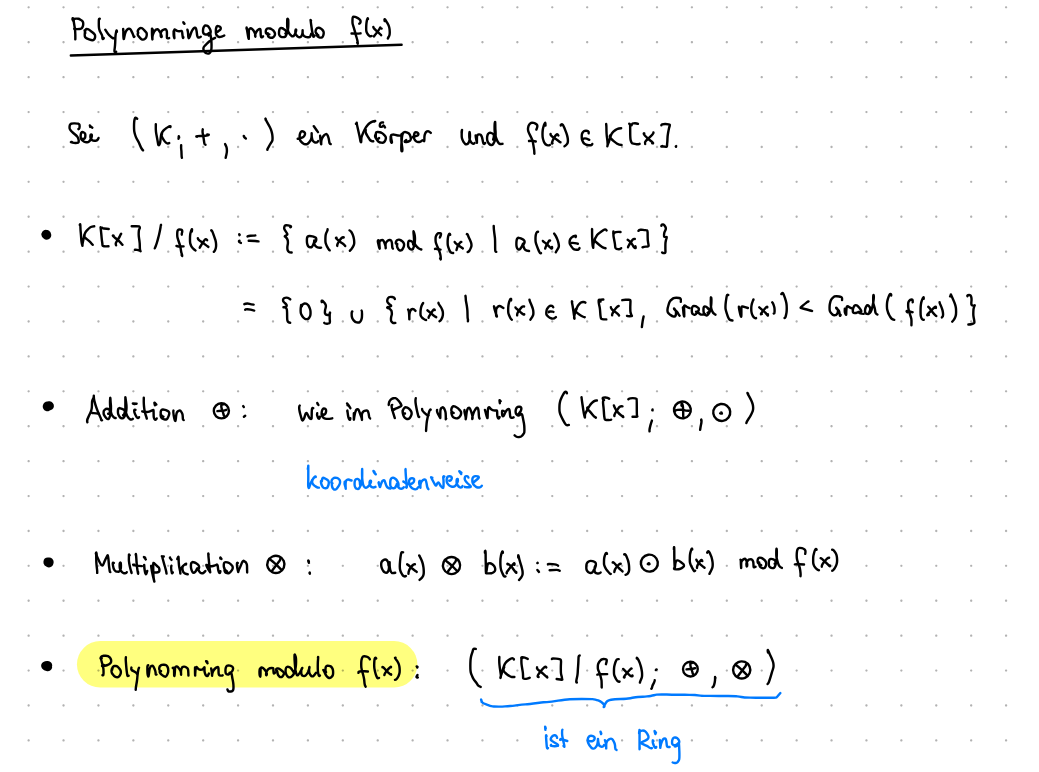 Polynomringe modulo f(x)
Sei (K; +, ·) ein Körper und f(x) ∈ K[x].
• K[x] / f(x) := { a(x) mod f(x) | a(x) ∈ K[x] }
= {0} ∪ { r(x) | r(x) ∈ K[x], Grad(r(x)) < Grad(f(x)) }
• Addition ⊕ : wie im Polynomring (K[x]; ⊕, ⊙)
koordinatenweise
• Multiplikation ⊗ : a(x) ⊗ b(x) := a(x) ⊙ b(x) mod f(x)
• Polynomring modulo f(x): (K[x] / f(x); ⊕, ⊗)
ist ein Ring